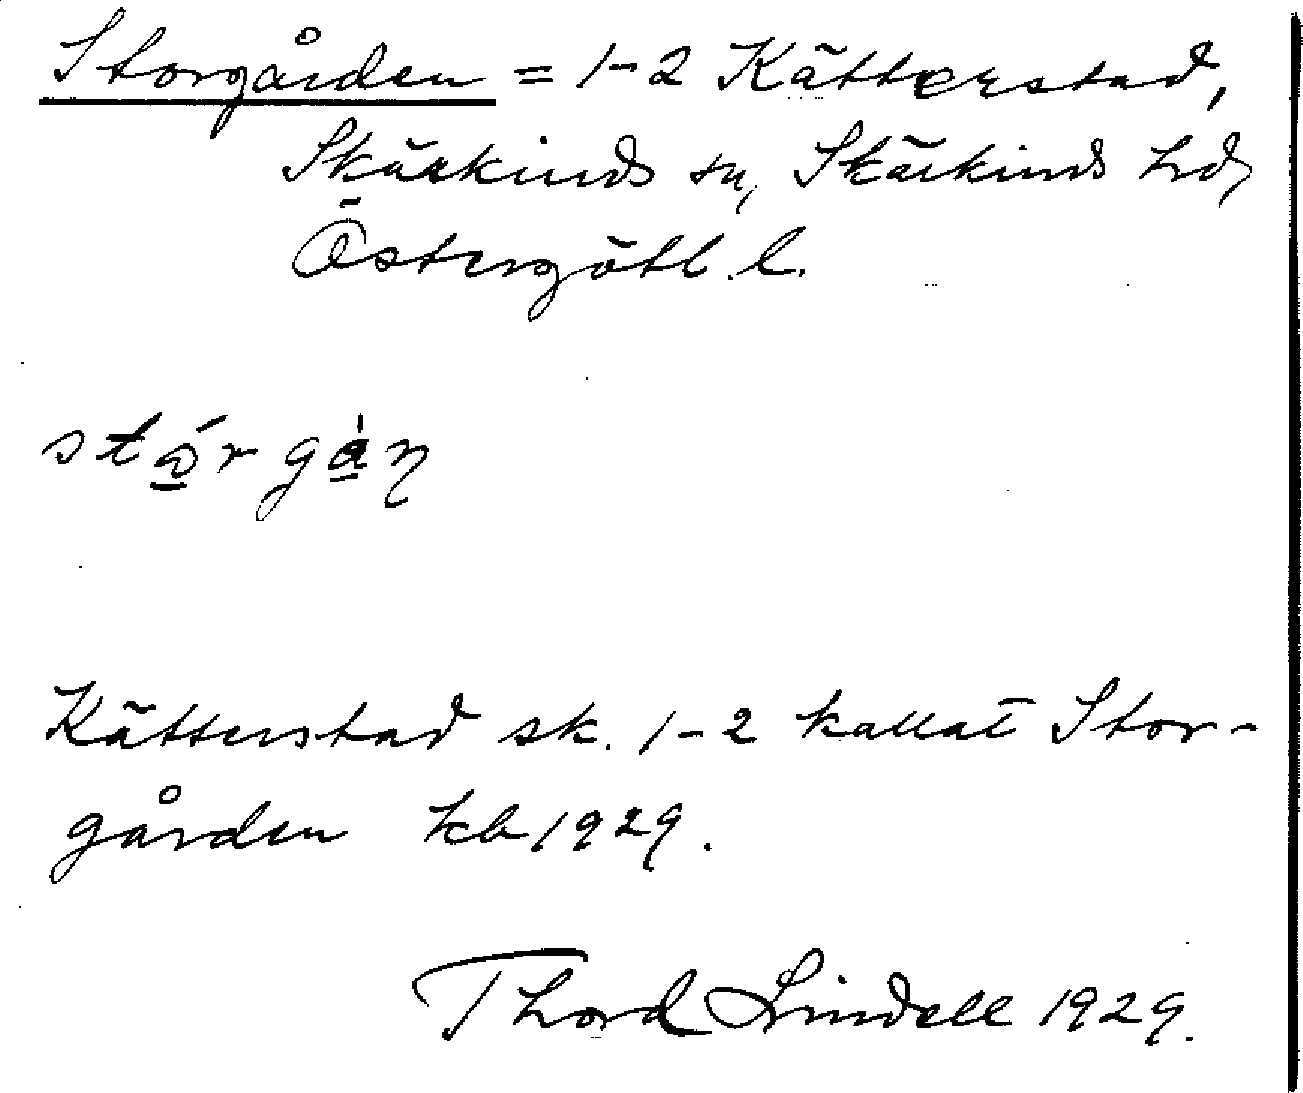 Storgården = 1-2 Kätterstad,
Skärkinds sn, Skärkinds hd,
Östergötl. l.
Kätterstad sk. 1-2 kallat Stor-
gården kb 1929.
Thord Lindell 1929.